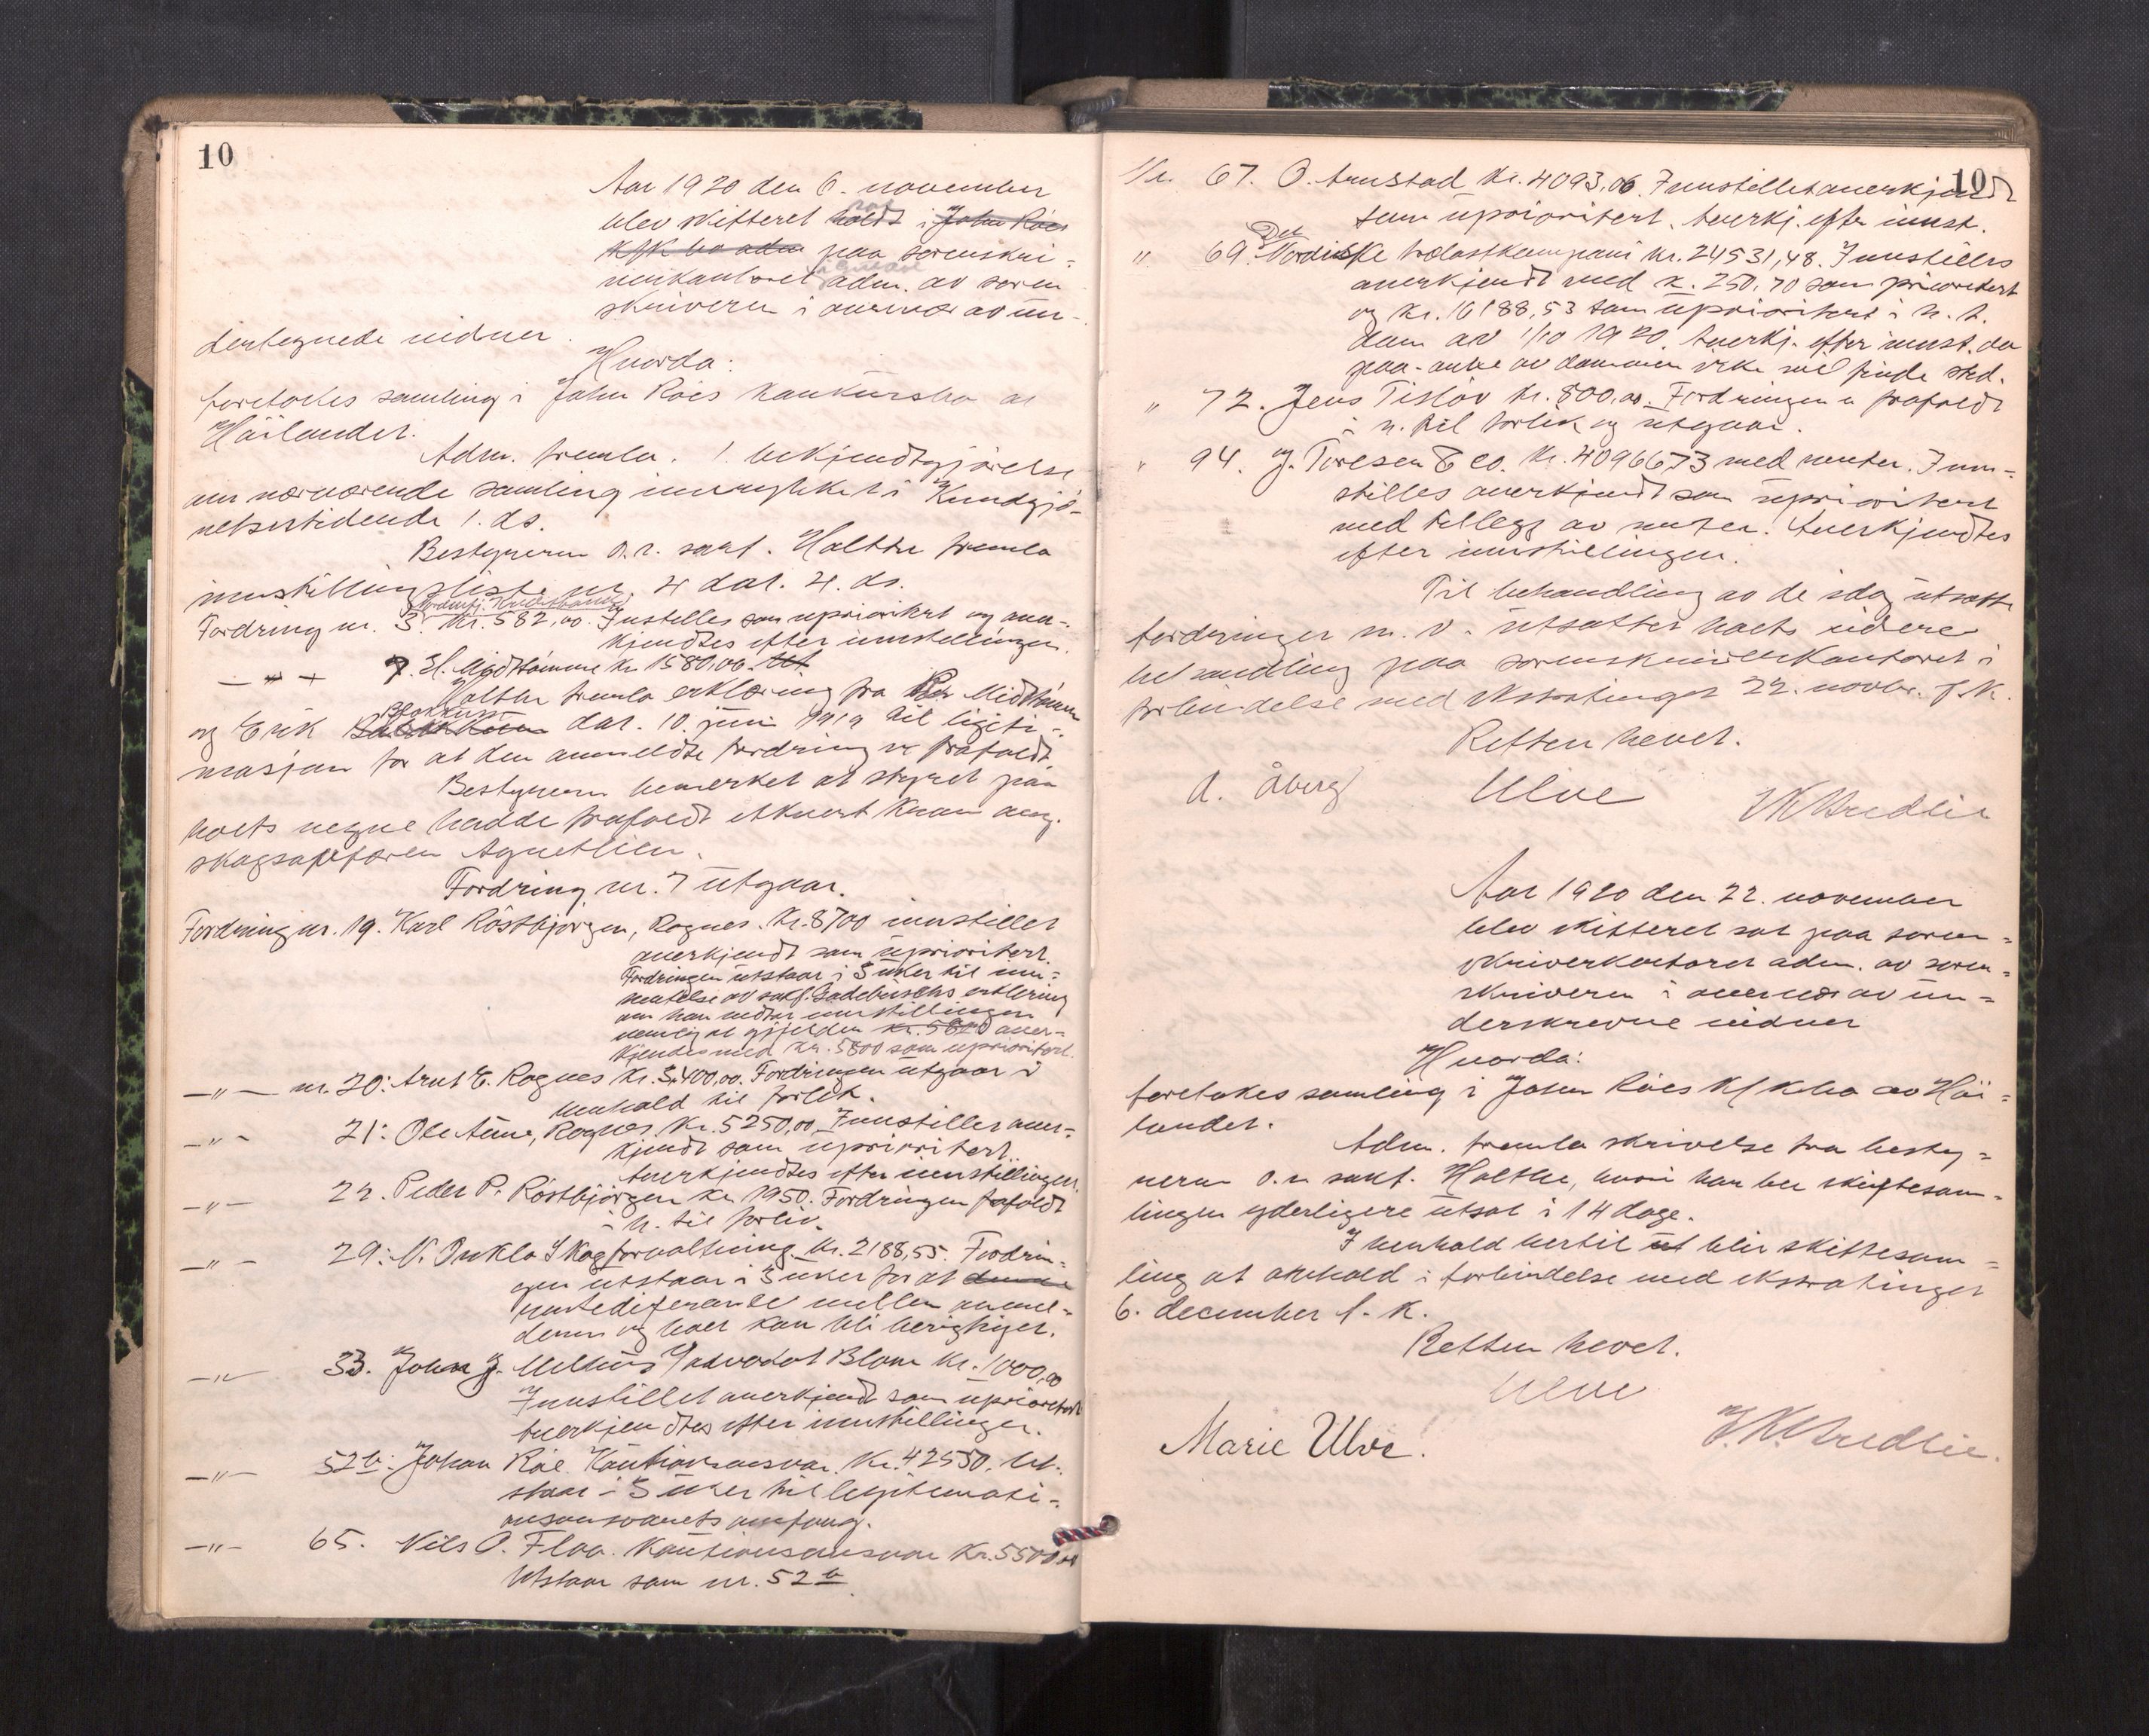 10
Aar 1920 den 6. november
blev skifteret holdt i John Röes
k/k bo adm paa sorenskri=
verkontoret adm. av soren
skriveren i overvær av un-
dertegnede vidner.
Hvorda:
foretokes samling i John Röes konkursbo av
Höilandet.
Adm. fremla. 1. bekjendtgjörelse
om nærværende samling inrykket i Kundgjö-
relsestidende 1. ds.
Bestyreren o.r. sakf. Holthe fremla
innstillingsliste nr. 4 dat. 4. ds.
Fordring nr. 3. Kr. 582,00. Instilles som uprioritert og aner-
kjendtes efter innstillingen.
7. E. Midthömme kr 1580,00. Ut
Holthe fremla erklæring fra Per Midthömme
og Erik dat. 10. juni 1919 til legiti-
masjon for at den anmeldte fordring er frafaldt.
Bestyreren bemerket at styret paa
boets vegne hadde frafaldt ethvert krav ang.
skogsaffæren Agnetlien.
Fordring nr. 7 utgaar.
Fordring nr. 19. Karl Röstbjörgen, Rognes. Kr. 8700 innstilles
anerkjendt som uprioritert.
Fordringen utstaar i 3 uker til inn=
hentelse av sakf. Gadebuschs erklæring
om han vedtar innstillingen
nemlig at gjælden kr. 5800 aner-
kjendes med kr. 5800 som uprioritert.
—"— nr. 20: Arnt E. Rognes Kr. 3,400,00. Fordringen utgaar i
henhold til forlik.
—"— 21: Ole Aune, Rognes Kr. 5250,00 Innstilles aner-
kjendt som uprioritert.
Anerkjendtes efter innstillingen.
—"— 22. Peder P. Röstbjörgen kr 1950. Fordringen frafaldt
i h. til forlik.
—"— 29: N. Orkla Skogforvaltning. Kr. 2188,55. Fordrin-
gen utstaar i 3 uker for at denne
rentedifferanse mellem anmel-
deren og boet kan bli berigtiget.
—"— 33. John J. Melhus v/advokat Blom Kr. 1000,00
Innstilles anerkjendt som uprioritert
Anerkjendtes efter innstillingen.
—"— 52b: Johan Röe. Kautionsansvar. Kr. 42550. Ut-
staar i 3 uker til legitimati-
on ansvarets omfang.
—"— 65. Nils O. Floa. Kautionsansvar Kr. 5500,00
Utstaar som nr. 52b
10
Nr. 67. O. Arnstad Kr. 4093,06. Innstilles anerkjendt
som uprioritert. Anerkj. efter innst.
" 69. Det Nordiske Trælastkompani kr. 24531,48. Innstilles
anerkjendt med k. 250,70 som prioritert
og kr. 16188,53 som uprioritert i h. t.
dom av 1/10 1920. Anerkj. efter innst. da
paa-anke av dommen ikke vil finde sted.
" 72. Jens Tislöv kr. 800,00. Fordringen er frafaldt
i h. til forlik og utgaar.
" 94. J. Toresen & Co. Kr. 40966,73 med renter. Inn=
stilles anerkjendt som uprioritert
med tillegg av renter. Anerkjendtes
efter innstillingen.
Til behandling av de idag utsatte
fordringer m. v. utsattes boets videre
behandling paa sorenskriverkontoret i
forbindelse med ekstratinget 22. novbr. f. k.
Retten hevet.
A. Åberg Ulve
Aar 1920 den 22. november
blev skifteret sat paa soren=
skriverkontoret adm. av soren=
skriveren i overvær av un=
derskrevne vidner
Hvorda:
foretokes samling i John Röes k/k bo av Höi=
landet.
Adm. fremla skrivelse fra besty=
reren o.r. sakf. Holthe, hvori han ber skiftesam-
lingen yderligere utsat i 14 dage.
I henhold hertil ut blir skiftesam=
ling at avhold i forbindelse med ekstratinget
6. december f. k.
Retten hevet.
Ulve
Marie Ulve.